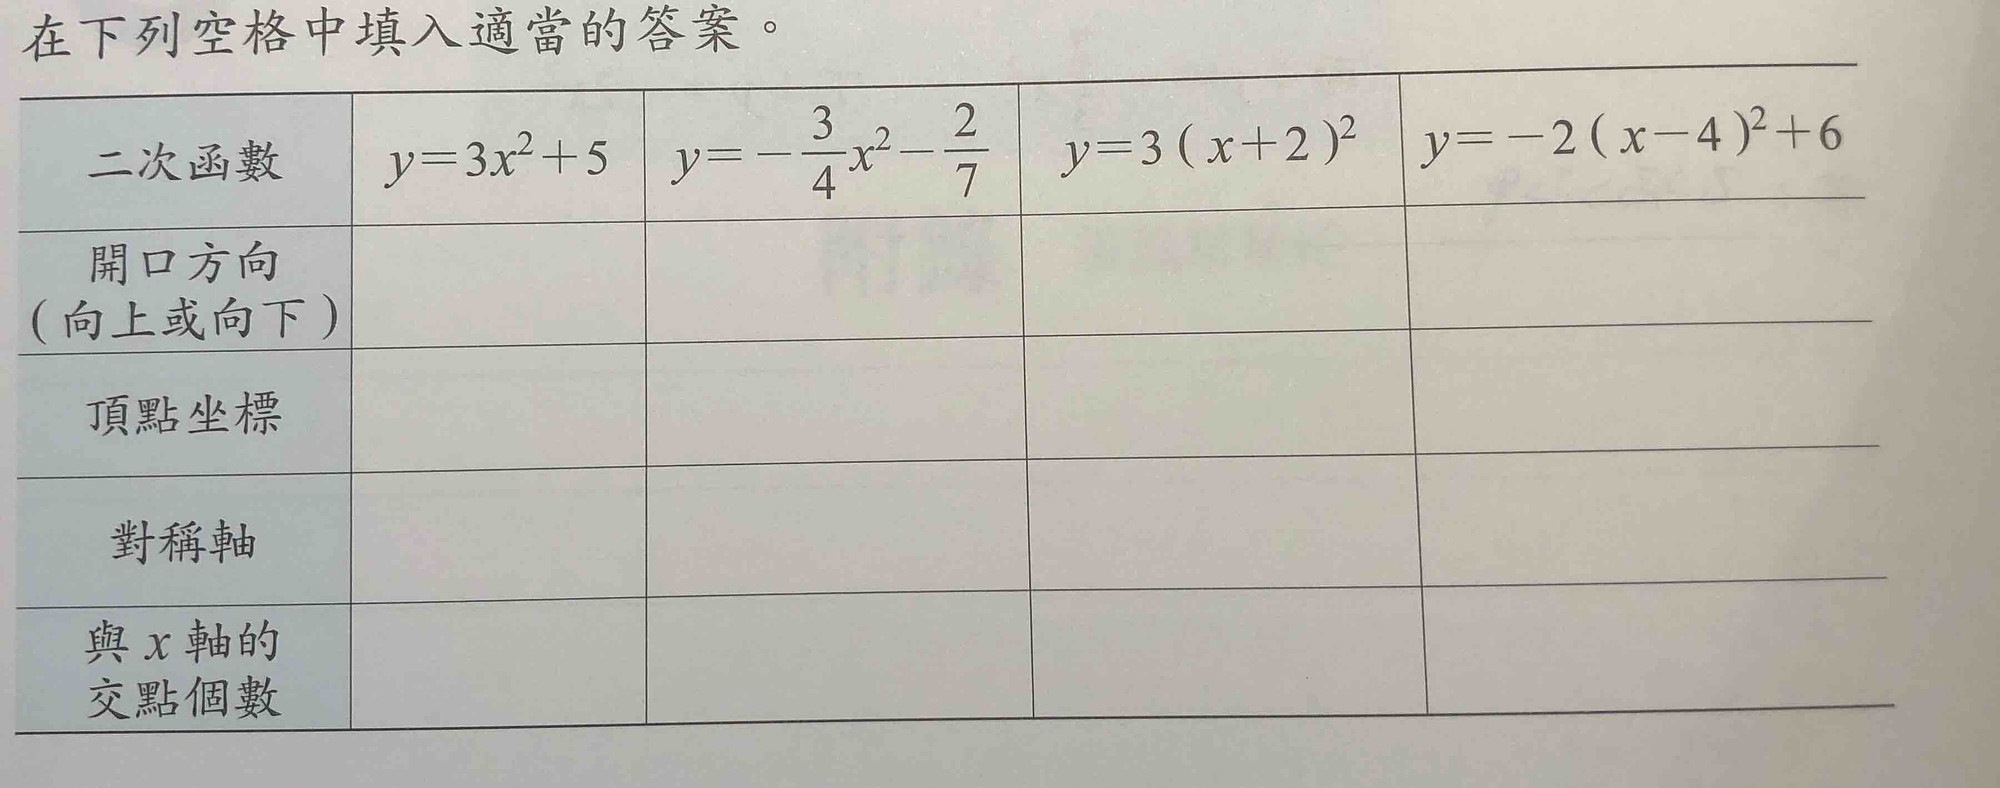 在下列空格中填入適當的答案。
二次函數 y=3x²+5 y=-3/4x²-2/7 y=3(x+2)² y=-2(x-4)²+6
開口方向
(向上或向下)
頂點坐標
對稱軸
與 x 軸的
交點個數